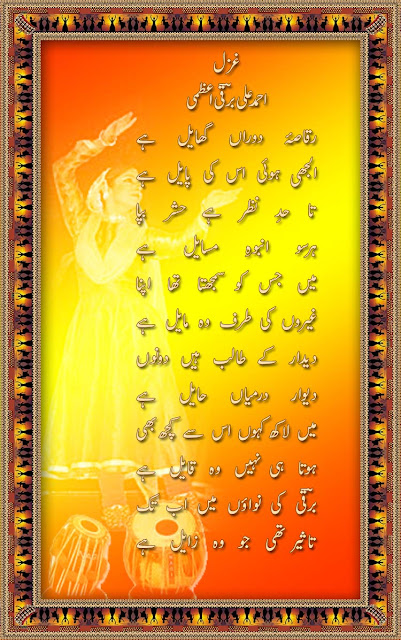 غزل
احمد علی برقی اعظمی
رقاصۂ دوراں گھایل ہے
الجھی ہوئی اس کی پایل ہے
تا حدِ نظر ہے حشر بپا
ہرسو انبوہِ مسایل ہے
میں جس کو سمجھتا تھا اپنا
غیروں کی طرف وہ مایل ہے
دیدار کے طالب ہیں دونوں
دیوار درمیاں حایل ہے
میں لاکھ کہوں اس سے کچھ بھی
ہوتا ہی نہیں وہ قایل ہے
برقی کی نواؤں میں اب تک
تاثیر تھی جو وہ زایل ہے